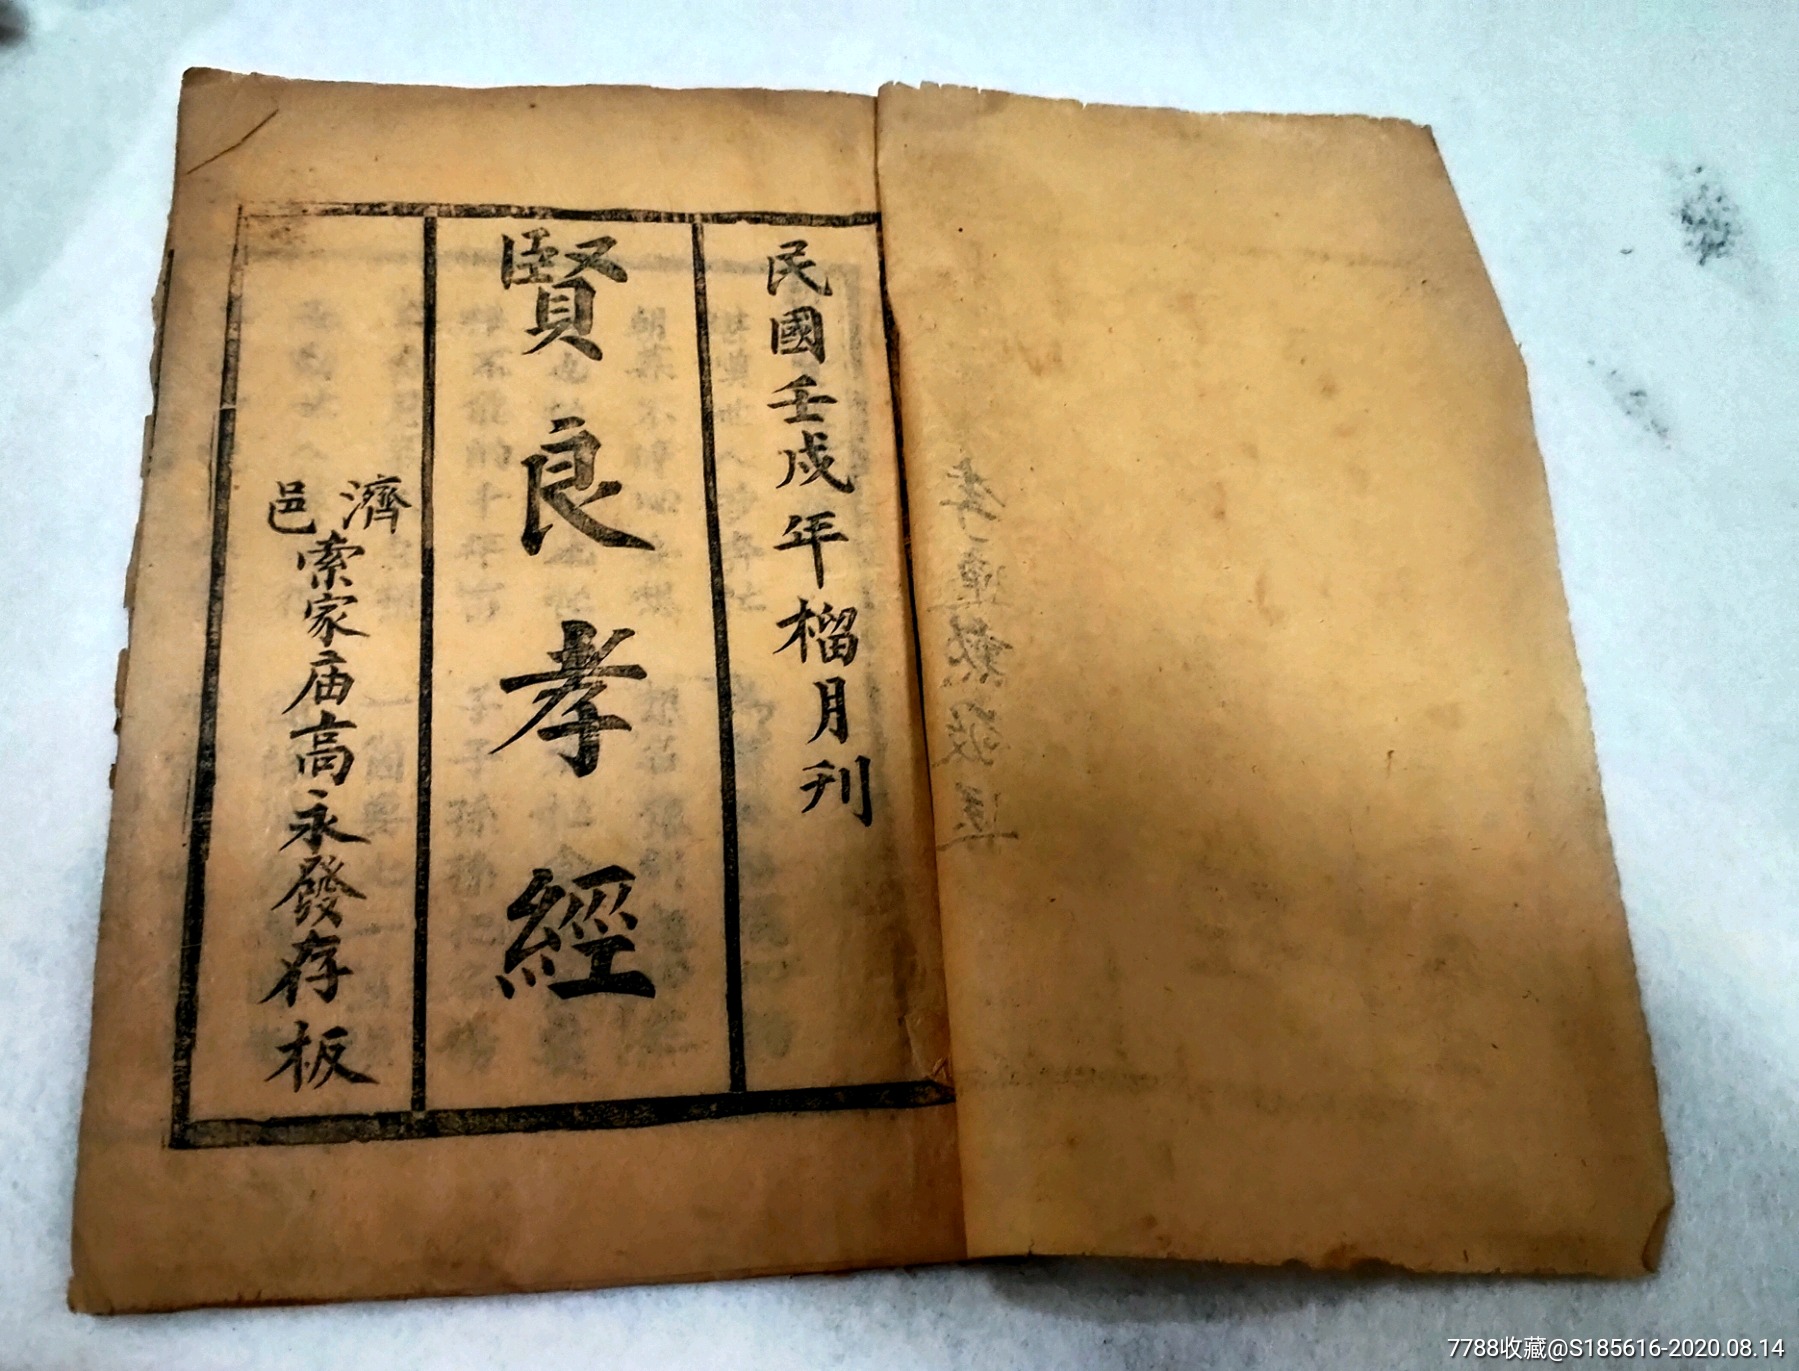 民國壬戌年榴月刋
賢良孝經
濟邑索家庙高永發存板
7788收藏@S185616-2020.08.14